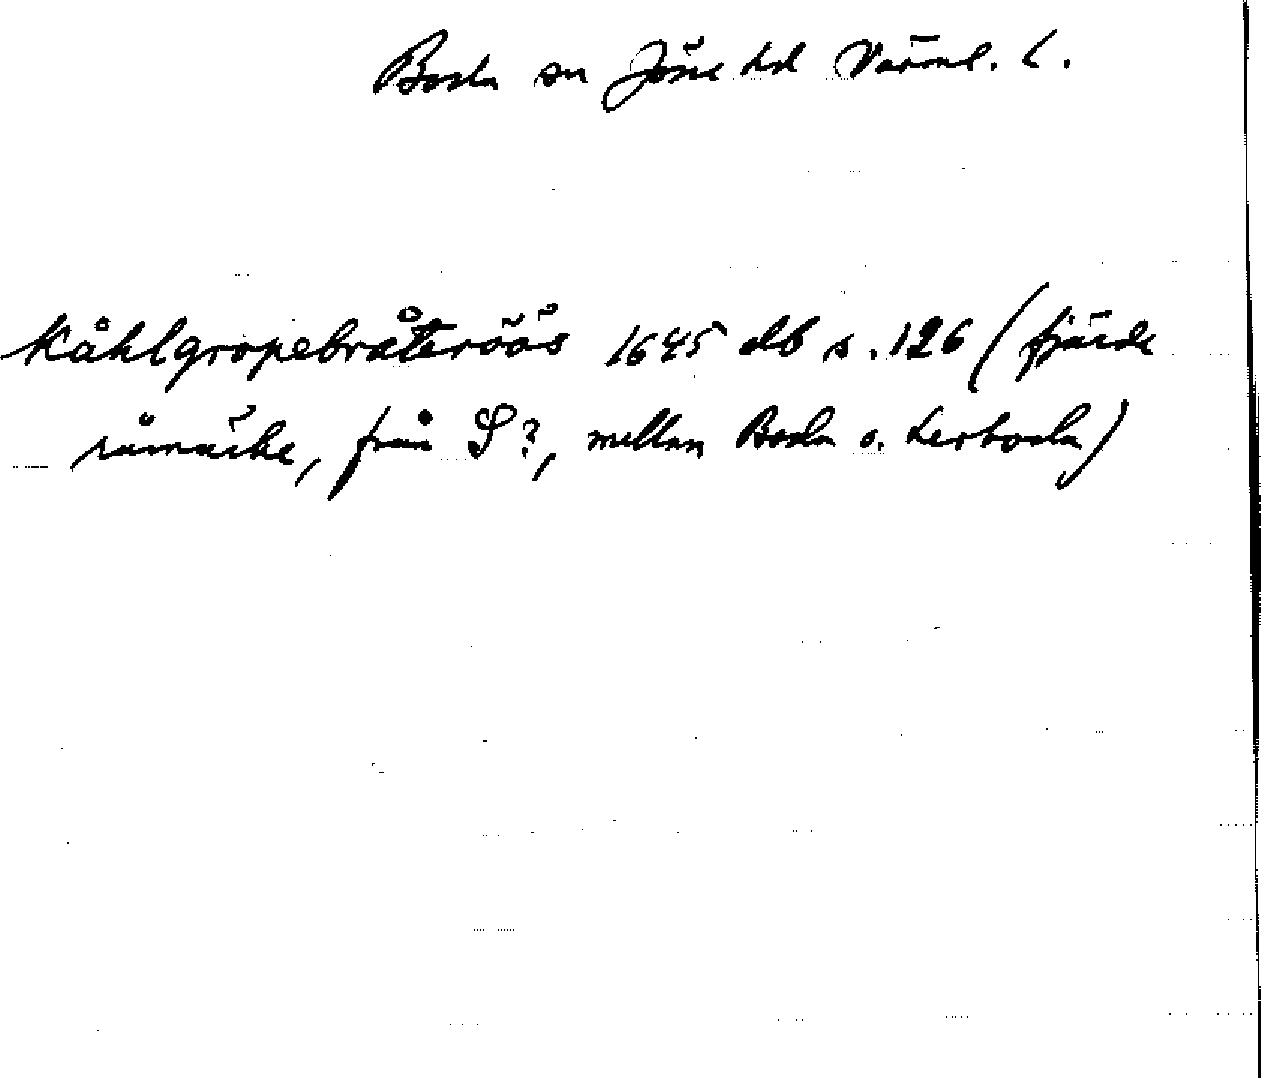 Boda sn Jösse hd Värml. l.
Kåhlgropebråteröös 1645 db s. 126 (fjärde
råmärke, från S?, mellan Boda o. Lerboda)